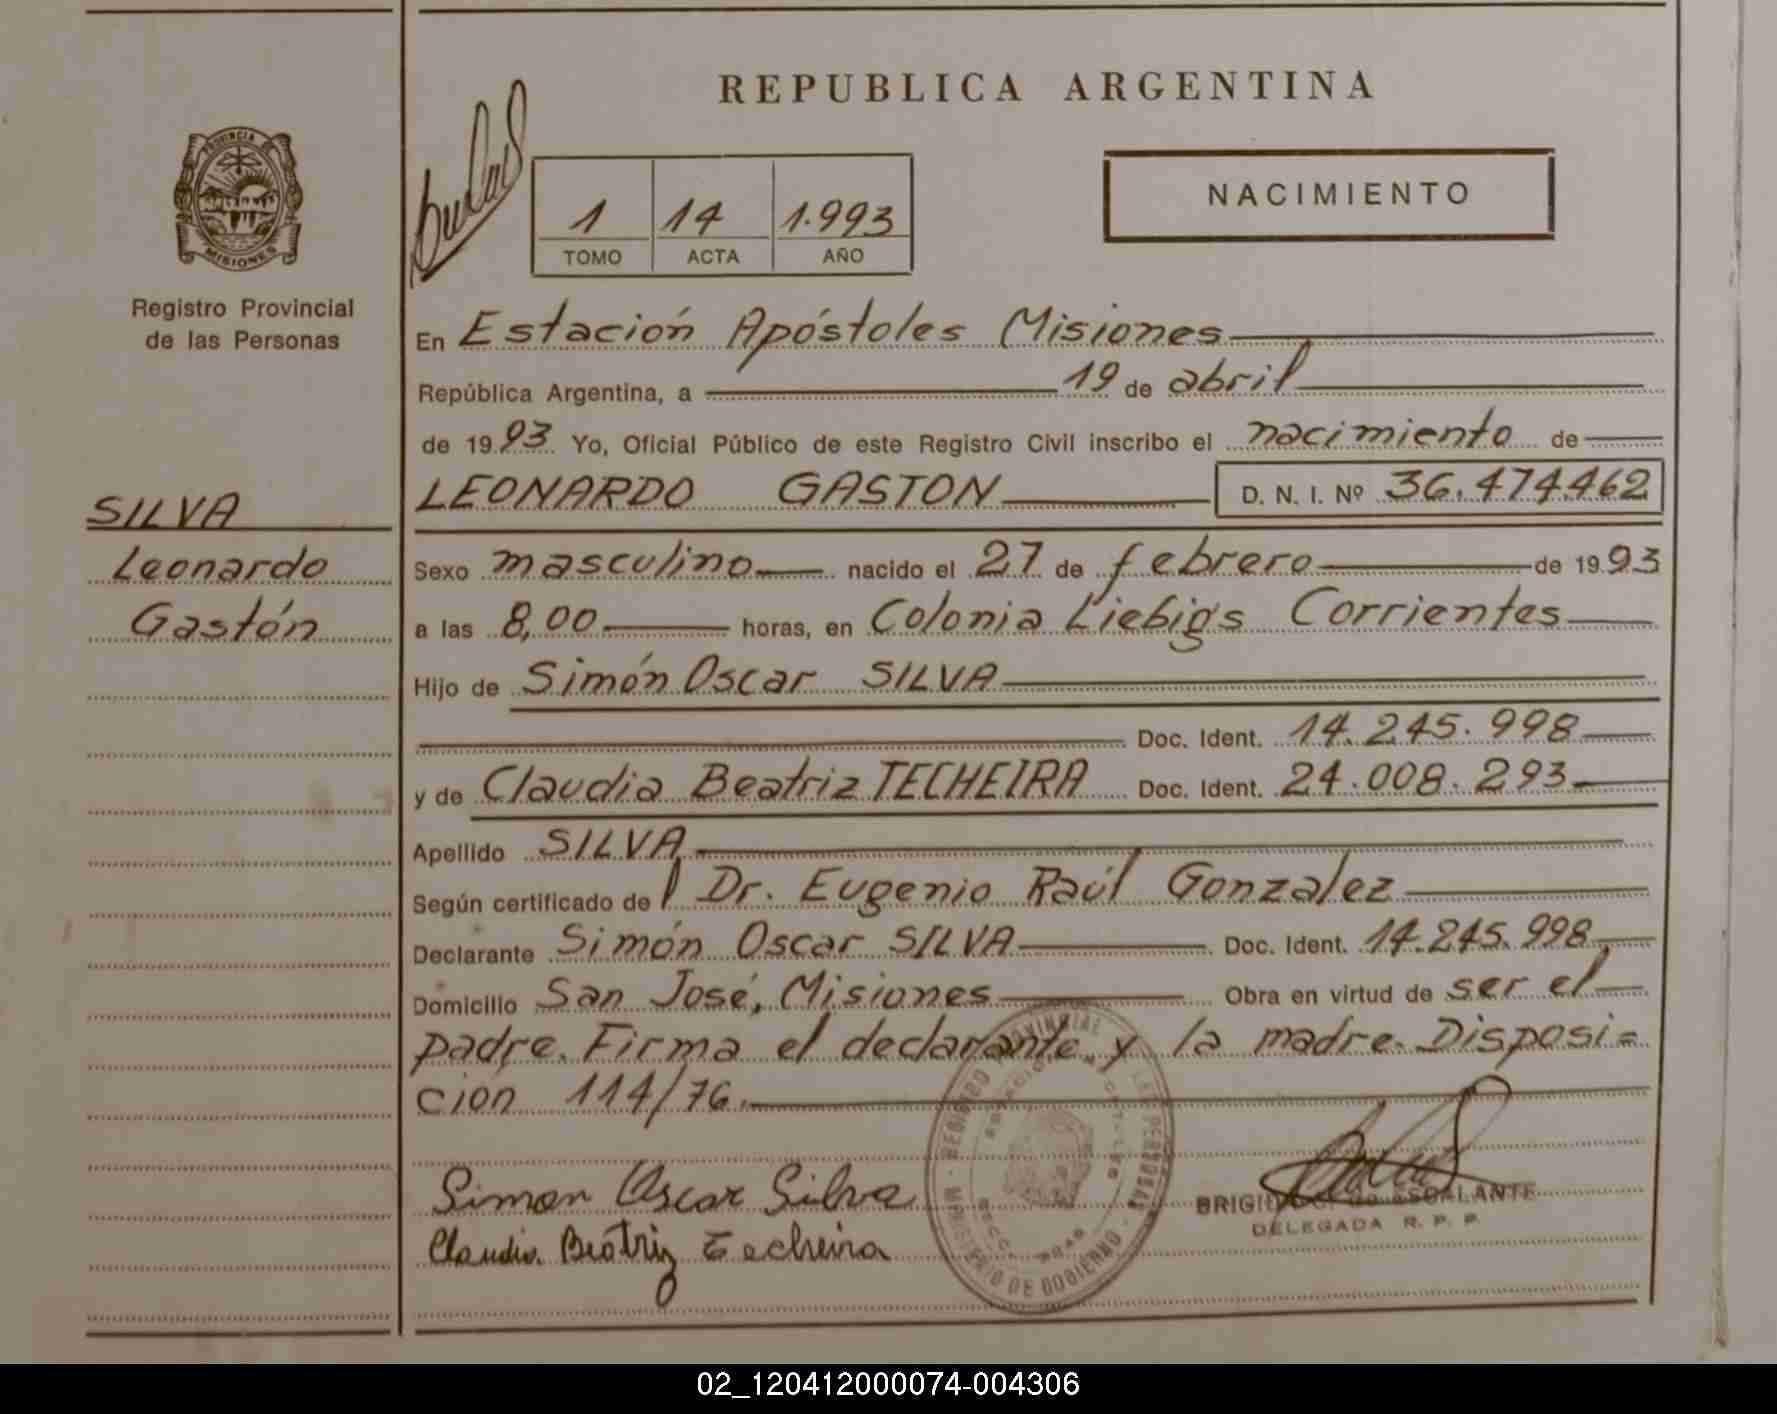 REPUBLICA ARGENTINA
NACIMIENTO
1 14 1.993
TOMO ACTA AÑO
PROVINCIA DE
MISIONES
Registro Provincial
de las Personas
En Estación Apóstoles Misiones
República Argentina, a 19 de abril
de 19 93 Yo, Oficial Público de este Registro Civil inscribo el nacimiento de
LEONARDO GASTON D. N. I. Nº 36.474.462
SILVA
Leonardo
Gastón
Sexo masculino nacido el 27 de febrero de 19 93
a las 8,00 horas, en Colonia Liebigs Corrientes
Hijo de Simón Oscar SILVA
Doc. Ident. 14.245.998
y de Claudia Beatriz TECHEIRA Doc. Ident. 24.008.293
Apellido SILVA
Según certificado de l Dr. Eugenio Raúl Gonzalez
Declarante Simón Oscar SILVA Doc. Ident. 14.245.998
Domicilio San José, Misiones Obra en virtud de ser el
padre. Firma el declarante y la madre. Disposi=
ción 114/76.
Simon Oscar Silva
Claudia Beatriz Techeira
REGISTRO PROVINCIAL DE LAS PERSONAS
MINISTERIO DE GOBIERNO
ESCALANTE
DELEGADA R. P. P.
02_120412000074-004306